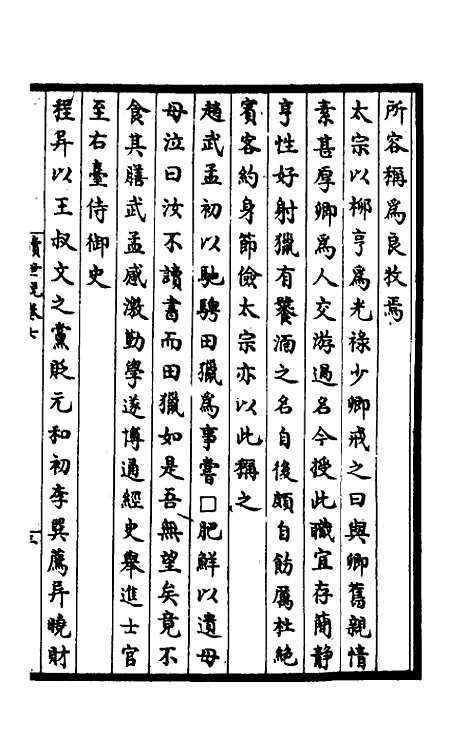 所容稱爲良牧焉
太宗以柳亨爲光祿少卿戒之曰與卿舊親情
素甚厚卿爲人交游過名今授此職宜存蕳静
亨性好射獵有饕酒之名自後頗自飭厲杜絶
賓客約身節儉太宗亦以此稱之
趙武孟初以馳騁田獵爲事嘗□肥鮮以遺母
母泣曰汝不讀書而田獵如是吾無望矣竟不
食其膳武孟感激勤學遂博通經史舉進士官
至右臺侍御史
程异以王叔文之黨貶元和初李巽薦异曉財
續世說卷七